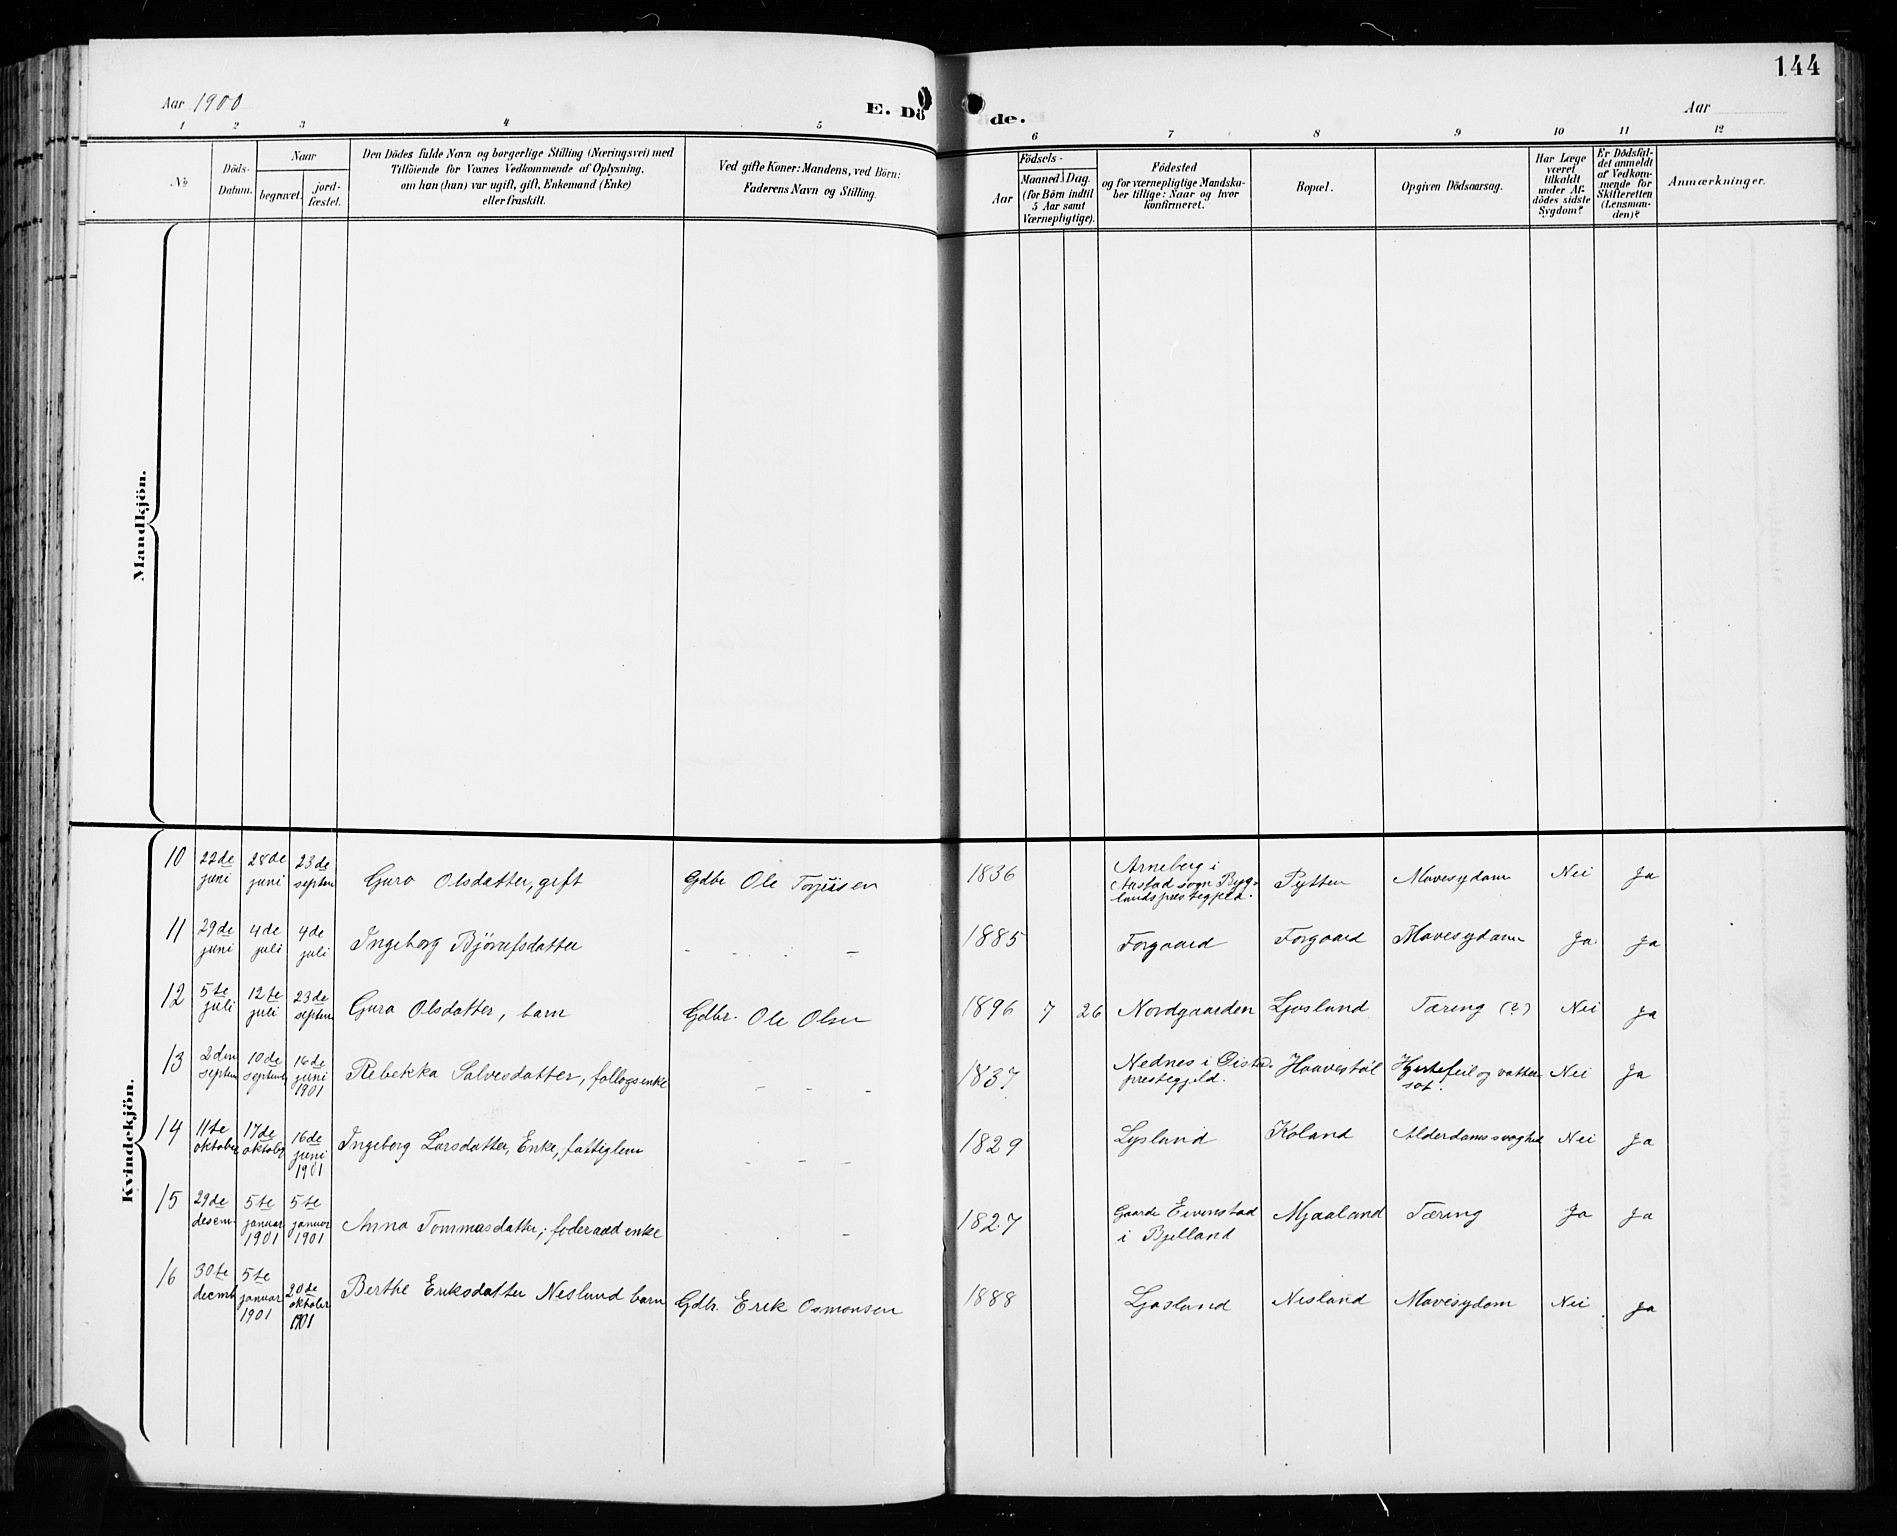 144
Aar 1900
E. Dö de.
Aar
1 2 3 4 5 6 7 8 9 10 11 12
No
Döds-
Datum.
Naar
begravet.
jord-
fæstet.
Den Dödes fulde Navn og borgerlige Stilling (Næringsvei) med
Tilföiende for Voxnes Vedkommende af Oplysning,
om han (hun) var ugift, gift, Enkemand (Enke)
eller fraskilt.
Ved gifte Koner: Mandens, ved Börn:
Faderens Navn og Stilling.
Födsels-
Aar
Maaned. Dag.
(for Börn indtil
5 Aar samt
Værnepligtige).
Födested
og for værnepligtige Mandsku-
ber tillige: Naar og hvor
konfirmeret.
Bopæl.
Opgiven Dödsaarsag.
Har Læge
været
tilkaldt
under Af-
dödes sidste
Sygdom?
Er Dödsfal-
det anmeldt
af Vedkom-
mende for
Skifteretten
(Lensman-
den)?
Anmærkninger.
Mandkjön.
Kvindekjön.
10 22de juni 28de juni 23de septem Guro Olsdatter, gift Gdbr Ole Torjusen 1836 Arneberg i Aastad sogn Byg-
landsprestegjeld. Pytten Mavesydom Nei Ja
11 29de juni 4de juli 4de juli Ingeborg Bjørufsdatter - - - - 1885 Forgaard Forgaard Mavesydom Ja Ja
12 5te juli 12te juli 23de septem Guro Olsdatter, barn Gdbr. Ole Olsen 1896 7 26 Nordgaarden Ljosland Tæring (?) Nei Ja
13 2den septem 10de septemb 16de juni 1901 Rebekka Salvesdatter, follogsenke - - - 1837 Nednes i Øista.
prestegjeld. Haavestøl Hjertefeil og vatter-
sot. Nei Ja
14 11te oktober 17de oktobg 16de juni 1901 Ingeborg Larsdatter, Enke, fattiglem - - - 1829 Lysland Koland Alderdomssvaghed Nei Ja
15 29de desem- 5te januar 1901 5te januar 1901 Anna Tommasdatter, foderaadenke - 1827 Gaarde Eivenstad
i Bjelland Mjaaland Tæring Ja Ja
16 30te decmb 5te januar 1901 20de oktober 1901 Berthe Eriksdatter Nesland barn Gdbr. Erik Osmonsen 1888 Ljosland Nesland Mavesydom Nei Ja